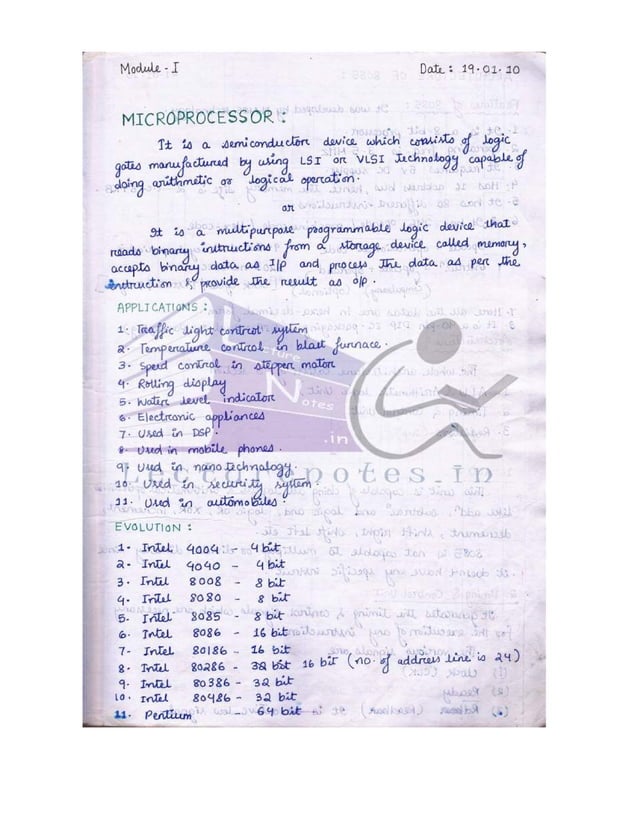 Module - I Date : 19.01.10
MICROPROCESSOR :
It is a semiconductor device which consists of logic
gates manufactured by using LSI or VLSI Technology capable of
doing arithmetic or logical operation.
or
It is a multipurpose programmable logic device that
reads binary instructions from a storage device called memory,
accepts binary data as I/P and process the data as per the
instruction & provide the result as O/P.
APPLICATIONS :
1. Traffic light control system
2. Temperature control in blast furnace.
3. Speed control in stepper motor
4. Rolling display
5. Water level indicator
6. Electronic appliances
7. Used in DSP.
8. Used in mobile phones.
9. Used in nano technology.
10. Used in security system.
11. Used in automobiles.
Lecture Notes .in
Lecturenotes.in
EVOLUTION :
1. Intel 4004 - 4 bit
2. Intel 4040 - 4 bit
3. Intel 8008 - 8 bit
4. Intel 8080 - 8 bit
5. Intel 8085 - 8 bit
6. Intel 8086 - 16 bit
7. Intel 80186 - 16 bit
8. Intel 80286 - 32 bit 16 bit (no. of address line is 24)
9. Intel 80386 - 32 bit
10. Intel 80486 - 32 bit
11. Pentium - 64 bit